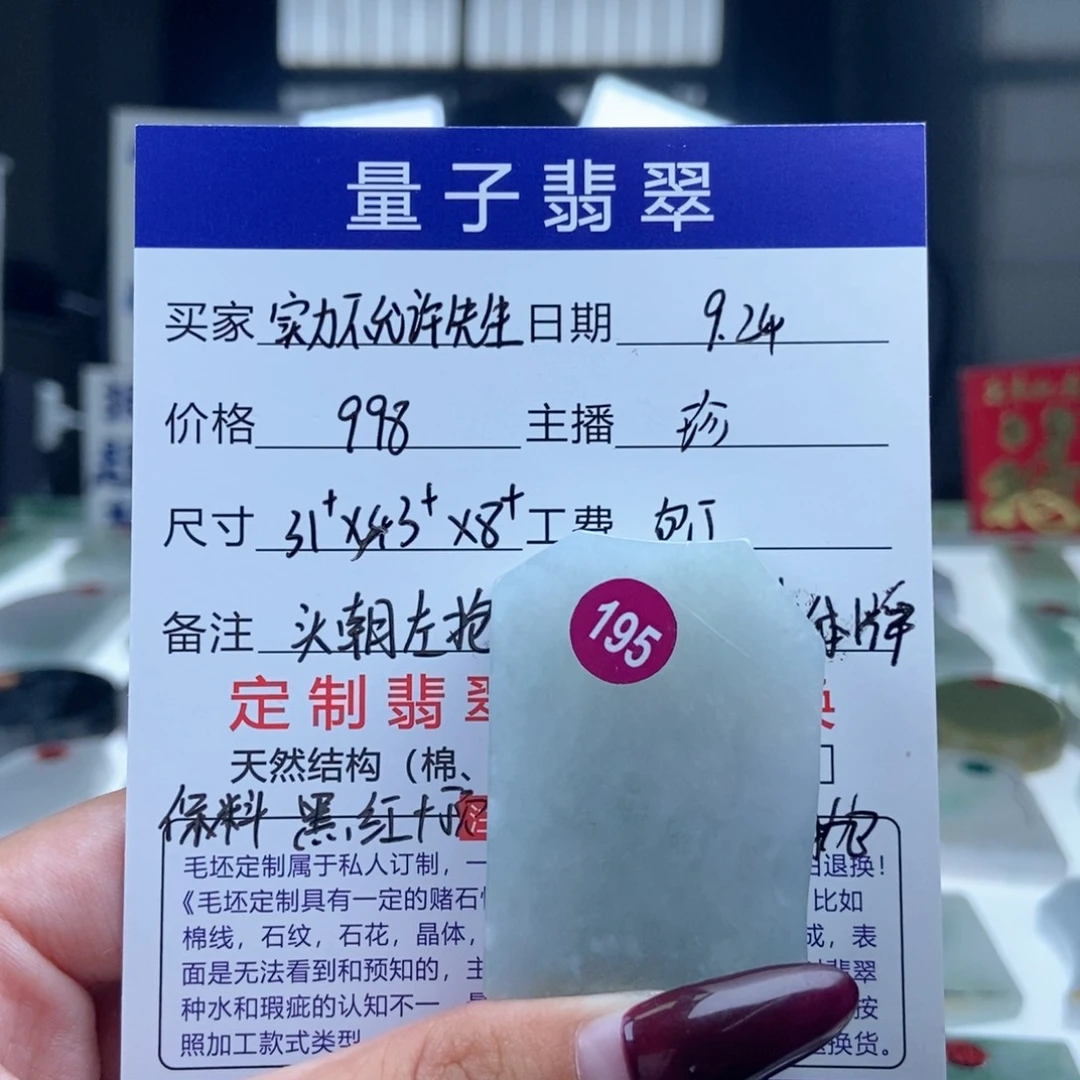 量子翡翠
买家 实力不允许先生 日期 9.24
价格 998 主播 珍
尺寸 31⁺×43⁺×8⁺ 工费
备注 头朝左抱 牌
195
定制翡翠
天然结构（棉、
保料 黑.红
毛坯定制属于私人订制，一 退换！
《毛坯定制具有一定的赌石 比如
棉线，石纹，石花，晶体， 成，表
面是无法看到和预知的，主 翡翠
种水和瑕疵的认知不一 按
照加工款式类型 换货。